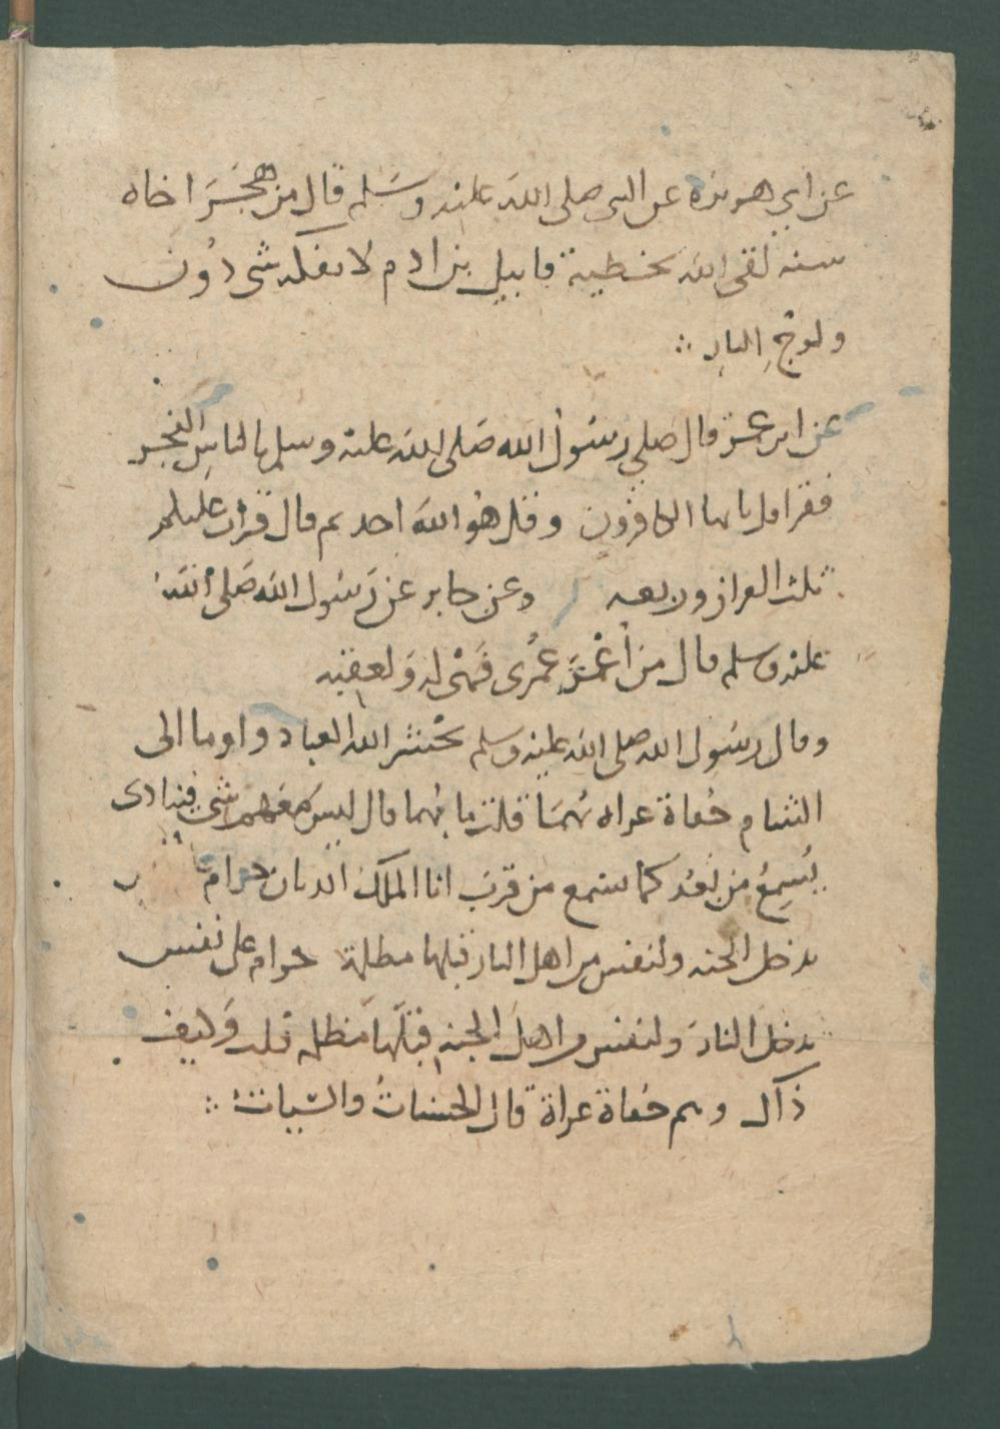 عن ابي هريرة عن النبي صلى الله عليه وسلم قال من هجر اخاه
سنة لقى الله بخطية قابيل بن ادم لا يفكه شي دون
ولوج النار
عن ابن عمر قال صلى رسول الله صلى الله عليه وسلم بالناس الفجر
فقرا قل يا يها الكافرون وقل هو الله احد ثم قال قرات عليكم
ثلث القران وربعه وعن جابر عن رسول الله صلى الله
عليه وسلم قال من أعمر عمرى فهى له ولعقبه
وقال رسول الله صلى الله عليه وسلم يحشر الله العباد واوما الى
الشام حفاة عراه بهما قلت ما بهما قال ليس معهم شي فينادى
يسمع من بعد كما يسمع من قرب انا الملك الديان حرام
يدخل الجنه ولنفس من اهل النار قبلها مظلمة حرام على نفس
يدخل النار ولنفس من اهل الجنه قبلها مظلمه قلت وكيف
ذاك وهم حفاة عراة قال الحسنات والسيات